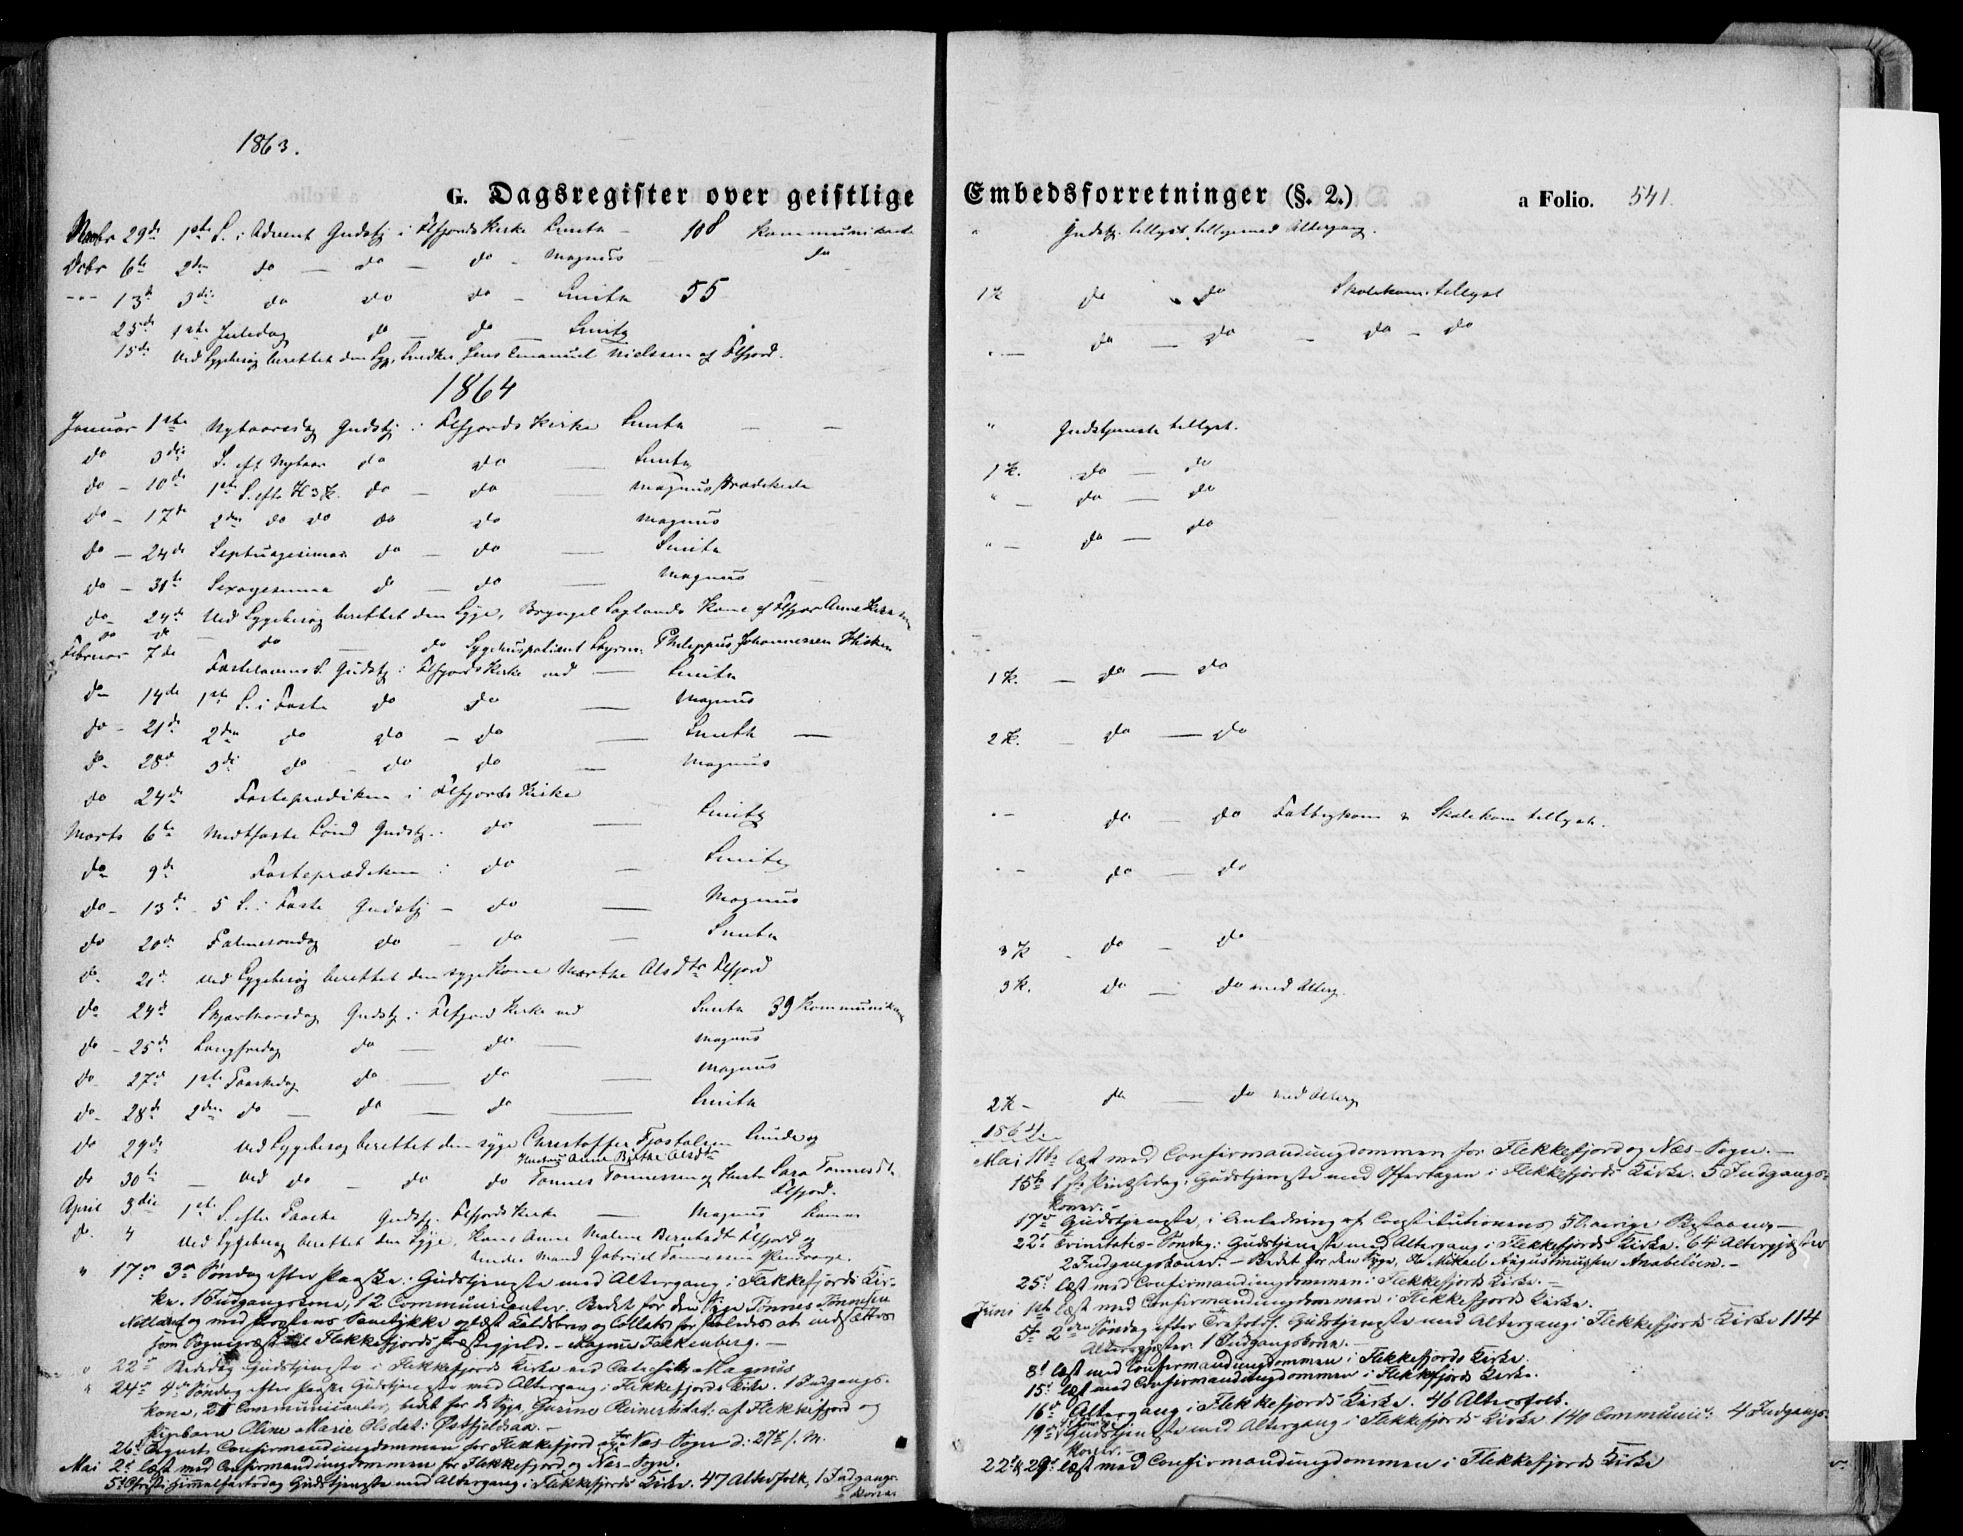 1863.
G. Dagsregister over geistlige Embedsforretninger (§. 2.) a Folio. 541.
29de 1ste S. i Advent Gudstj i Flfjords Kirke Smith – 108 Kommunikante
Debr 6te 2den do – do – do – Magnus – do
13de 3die do do do – Smith 55
25de 1ste Juledag do – do – Smith
15de Ved Sygebesøg berettet den Syg. Jens Emanuel Nielssen af Flfjord.
1864
Januar 1ste Nytaarsdag Gudstj i Flfjords Kirke Smith – –
do 3die S. eft Nytaar do do – Smith
do – 10de 1ste S. efter H 3 K. do – do – Magnus
do – 17de 2den do do do do Magnus
do – 24de Septuagesima do – do – Smith
do – 31te Sexagesima do – do – Magnus
do – 24de Ved Sygebesøg berettet den Syge, Kone af Flfjor Anne
do do – do – do Sygehuspatient Philippus Johannessen
Februar 7de Fastelavns S. Gudstj i Flfjords Kirke ved – Smith
do 14de 1ste S. i Faste do do – Magnus
do – 21de 2den do do – do – Smith –
do – 28de 3die do – do do – Magnus
do 24de Fasteprædiken i Flfjords Kirke
Marts 6te Midtfaste Sønd Gudstj. do – Smith
do 9de Fasteprædiken i do – Smith
do – 13de – 5 S. i Faste Gudstj – do – Magnus
do 20de Palmesøndag do – do – Smith
do – 21de Ved Sygebesøg berettet den syge Kone Marthe Flfjord
do 24de Skjærthorsdag Gudstj i Flfjord Kirke ved Smith 39 Kommunikan
do – 25de Langfredag do – do – Magnus
do – 27de 1ste Paaskedag do – do – Magnus
do – 28de 2den do – do – do – Smith
do 29de Ved Sygebesøg berettet den syge Christoffer Sunde og
Hustru Anne
do 30te – Ved do – do do Tønnes Tønnessen og Hustru Sara Tønnesdt
Flfjord.
April 3die 1ste S. efter Paaske Gudstj. Flfjords Kirke – Magnus
do. 4 Ved Sygebesøg berettet den Syge, Anne Malene Flfjord og
hendes Mand Gabriel
" 17de 3die Søndag efter Paaske: Gudstjeneste med Altergang i Flekkefjords Kir-
ke. 1 Indgangskone, 12 Communicanter. Bedet for den Syge Tønnes Tønnesen
og med Provstens læst Kaldsbrev og Collats for at indsættes
som Sognepræst til Flekkefjords Præstegjeld. – Magnus Falkenberg. –
" 22de Bededag Gudstjeneste i Flekkefjords Kirke ved Magnus
" 24de 4de Søndag efter Paaske Gudstjeneste med Altergang i Flekkefjords Kirke. 1 Indgangs-
kone, 21 Communicanter, bedet for de Syge, Reinertsdat: af Flekkefjord og
Pigebarn Oline Marie Olsdat:
26de Confirmandungdommen for Flekkefjord og Næs-Sogn
Mai 2de læst med Confirmandungdommen for Flekkefjord og Næs-Sogn.
5te Christi Himmelfartsdag Gudstjeneste med Altergang i Flekkefjords Kirke. 47 Altersfolk, 1 Indgangs-
kone.
" Gudstj. tillyst tilligemed Altergang.
1 K do do Skolekom. tillyst
" – do – do – do – do
" Gudstjeneste tillyst.
1 K. do – do
" – do – do
" – do – do
1 K. – do – do
2 K. – do – do
" – do – do & Skolekom tillyst.
" – do – do
3 K – do – do
3 K. do – do med Alterg.
2 K – do – do med Alterg
1864
Mai 11te læst med Confirmandungdommen for Flekkefjord og Næs-Sogn. –
15de 1ste Pintsedag: Gudstjeneste med Offertagen i Flekkefjords Kirke. 5 Indgangs-
koner. –
17de Gudstjeneste, i Anledning af Constitutionens 50aarige Bestaaen –
22de Trinitatis-Søndag: Gudstjeneste med Altergang i Flekkefjords Kirke. 64 Altergjæster
2 Indgangskoner. – Bedet for den Syge, Mikael Augustinussen Anabeløen. –
25de læst med Confirmandungdommen i Flekkefjords Kirke. –
Juni 1ste læst med Confirmandungdommen i Flekkefjords Kirke.
5te 2den Søndag efter Trefoldh. Gudstjeneste med Altergang i Flekkefjords Kirke 114
Altergjæster. 1 Indgangskone. –
8de læst med Confirmandungdommen i Flekkefjords Kirke.
15de læst med Confirmandungdommen i Flekkefjords Kirke.
16de Altergang i Flekkefjords Kirke. 46 Altersfolk.
19de Gudstjeneste med Altergang i Flekkefjords Kirke 140 Communic: 4 Indgangs-
koner. –
22de & 29de læst med Confirmandungdommen i Flekkefjords Kirke